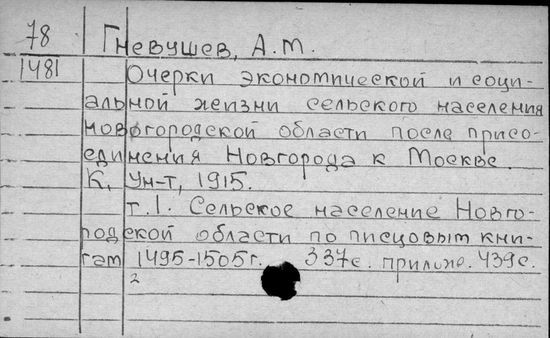 78 Гневушев, А.М.
1481 Очерки экономической и соци-
альной жизни сельского населения
новгородской области после присо-
единения Новгорода к Москве.
К, Ун-т, 1915.
т.1. Сельское население Новго-
родской области по писцовым кни-
гам 1495-1505г. 337с. прилож. 439с.
2